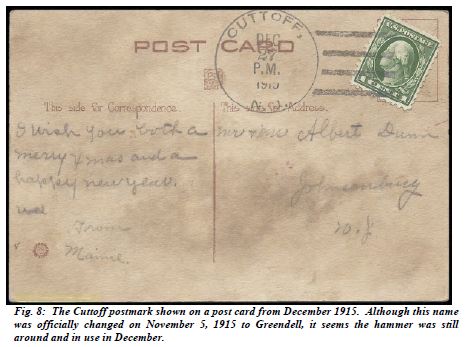 CUTTOFF,
DEC
27
P.M.
1915
N.J.
POST CARD
U.S. POSTAGE
This side for Correspondence.
This side for Address.
I wish you both a
merry Xmas and a
happy new year.
From
Mamie.
Mr + Mrs Albert Dunn
Johnsonburg
N.J
Fig. 8: The Cuttoff postmark shown on a post card from December 1915. Although this name
was officially changed on November 5, 1915 to Greendell, it seems the hammer was still
around and in use in December.